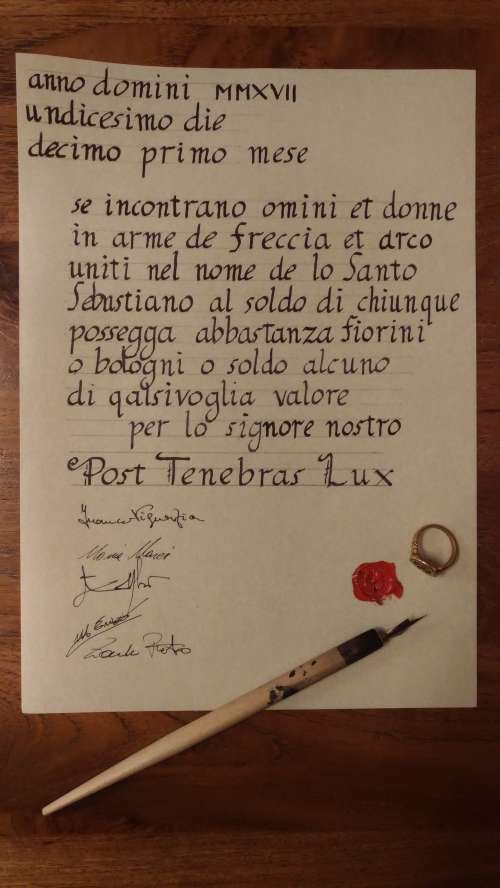 anno domini MMXVII
undicesimo die
decimo primo mese
se incontrano omini et donne
in arme de freccia et arco
uniti nel nome de lo Santo
Sebastiano al soldo di chiunque
possegga abbastanza fiorini
o bologni o soldo alcuno
di qalsivoglia valore
per lo signore nostro
e Post Tenebras Lux